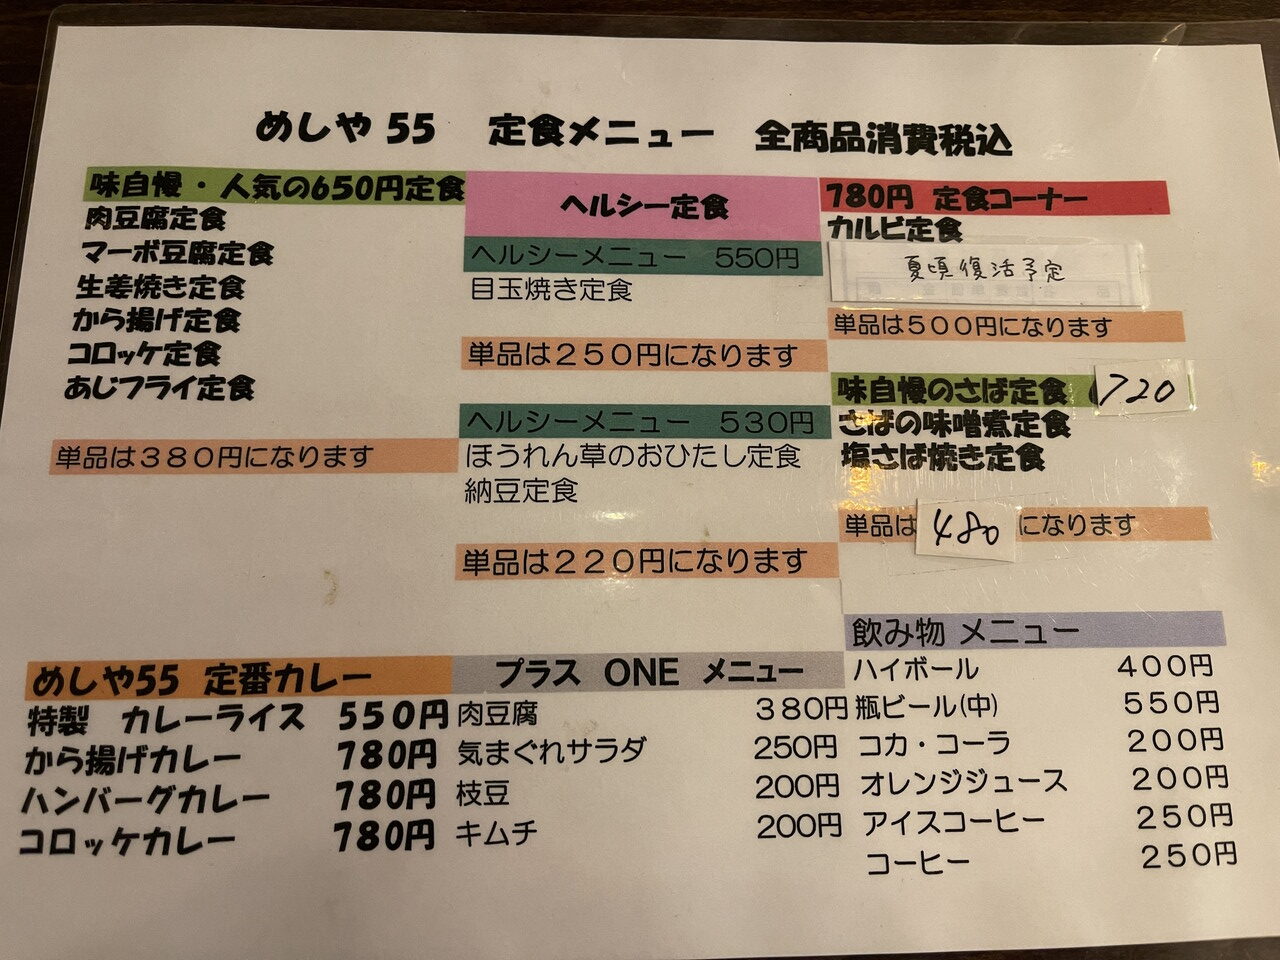 めしや 55 定食メニュー 全商品消費税込
味自慢・人気の650円定食
肉豆腐定食
マーボ豆腐定食
生姜焼き定食
から揚げ定食
コロッケ定食
あじフライ定食
単品は380円になります
ヘルシー定食
ヘルシーメニュー 550円
目玉焼き定食
単品は250円になります
ヘルシーメニュー 530円
ほうれん草のおひたし定食
納豆定食
単品は220円になります
780円 定食コーナー
カルビ定食
夏頃復活予定
単品は500円になります
味自慢のさば定食 720
さばの味噌煮定食
塩さば焼き定食
単品は480になります
めしや55 定番カレー
特製 カレーライス 550円
から揚げカレー 780円
ハンバーグカレー 780円
コロッケカレー 780円
プラス ONE メニュー
肉豆腐 380円
気まぐれサラダ 250円
枝豆 200円
キムチ 200円
飲み物 メニュー
ハイボール 400円
瓶ビール(中) 550円
コカ・コーラ 200円
オレンジジュース 200円
アイスコーヒー 250円
コーヒー 250円